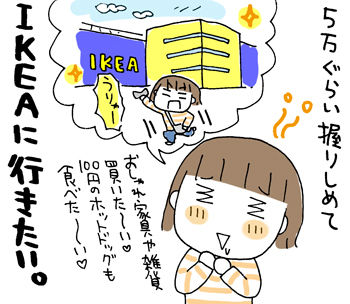 5万ぐらい握りしめて
IKEA
うりゃー
おしゃれ家具や雑貨
買いた〜い♡
100円のホットドッグも
食べた〜〜い♡
IKEAに行きたい。